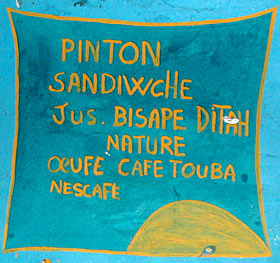 PINTON
SANDIWCHE
JUS. BISAPE DITAH
NATURE
ŒUFE CAFE TOUBA
NESCAFE